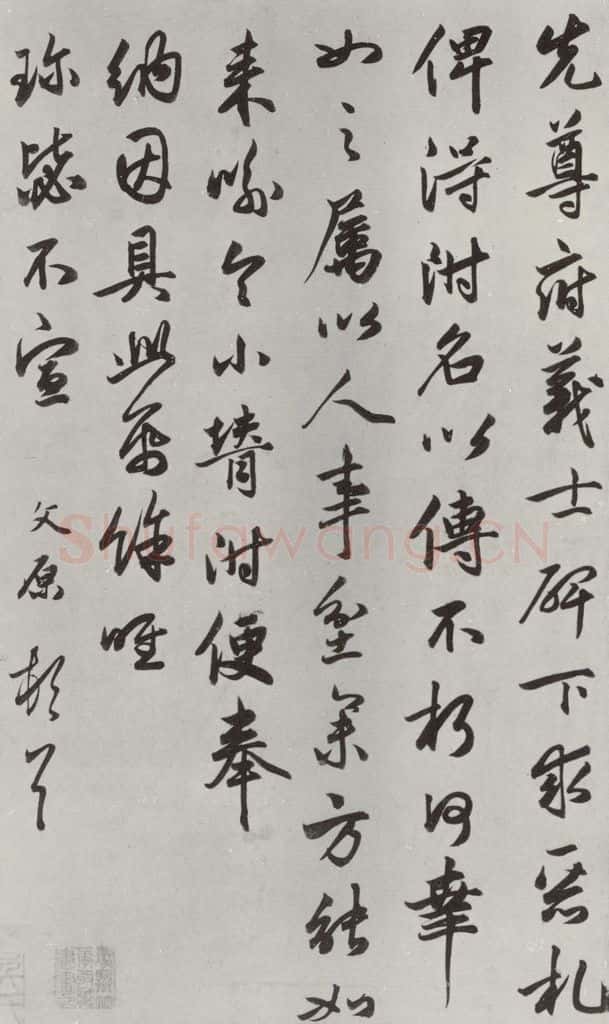 先尊府義士碑下求惡札
俾得附名以傳不朽何幸
如之屬以人事坌集方能如
來喻令小壻附便奉
納因具此餘唯
珍毖不宣 文原頓首
Shufawang.CN